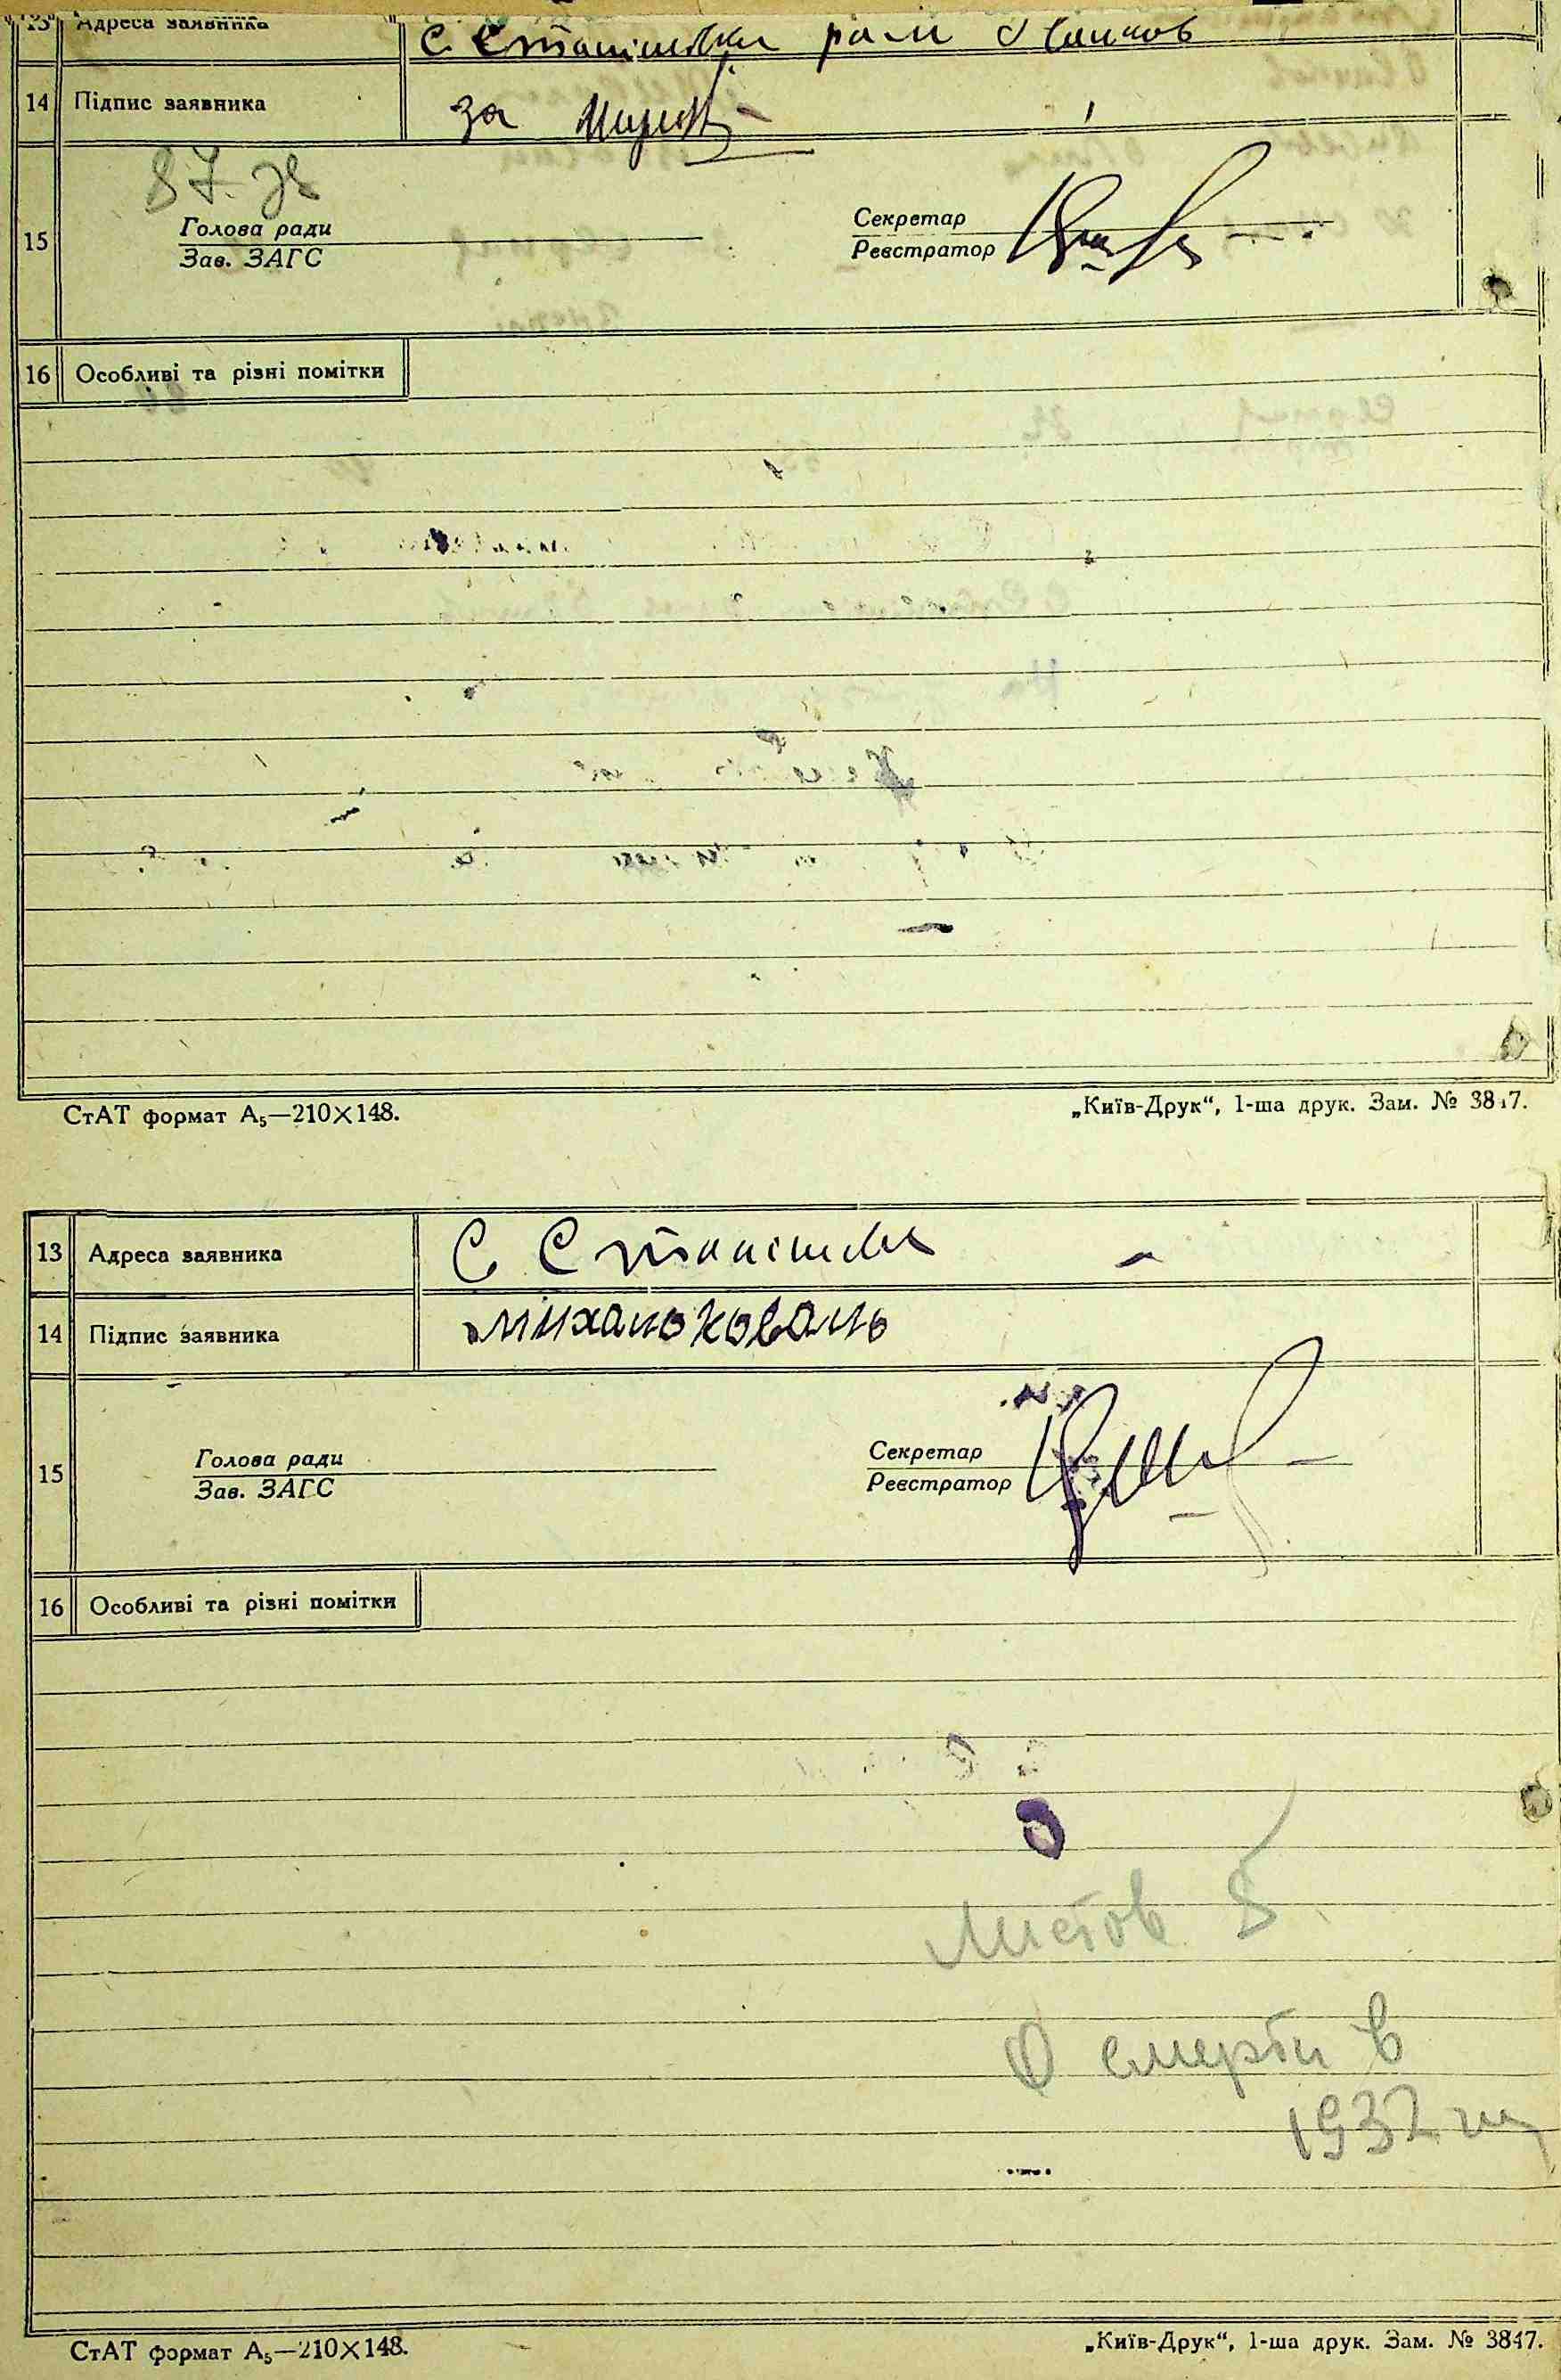 13 Адреса заявника С. Станішовка
14 Підпис заявника за
87. 78
15 Голова ради Секретар
Зав. ЗАГС Реєстратор
16 Особливі та різні помітки
СтАТ формат А₅—210×148. „Київ-Друк“, 1-ша друк. Зам. № 3847.
13 Адреса заявника С Станішовка
14 Підпис заявника михайло коваль
15 Голова ради Секретар
Зав. ЗАГС Реєстратор
16 Особливі та різні помітки
Листов 8
О смерти в
1932 г
СтАТ формат А₅—210×148. „Київ-Друк“, 1-ша друк. Зам. № 3847.